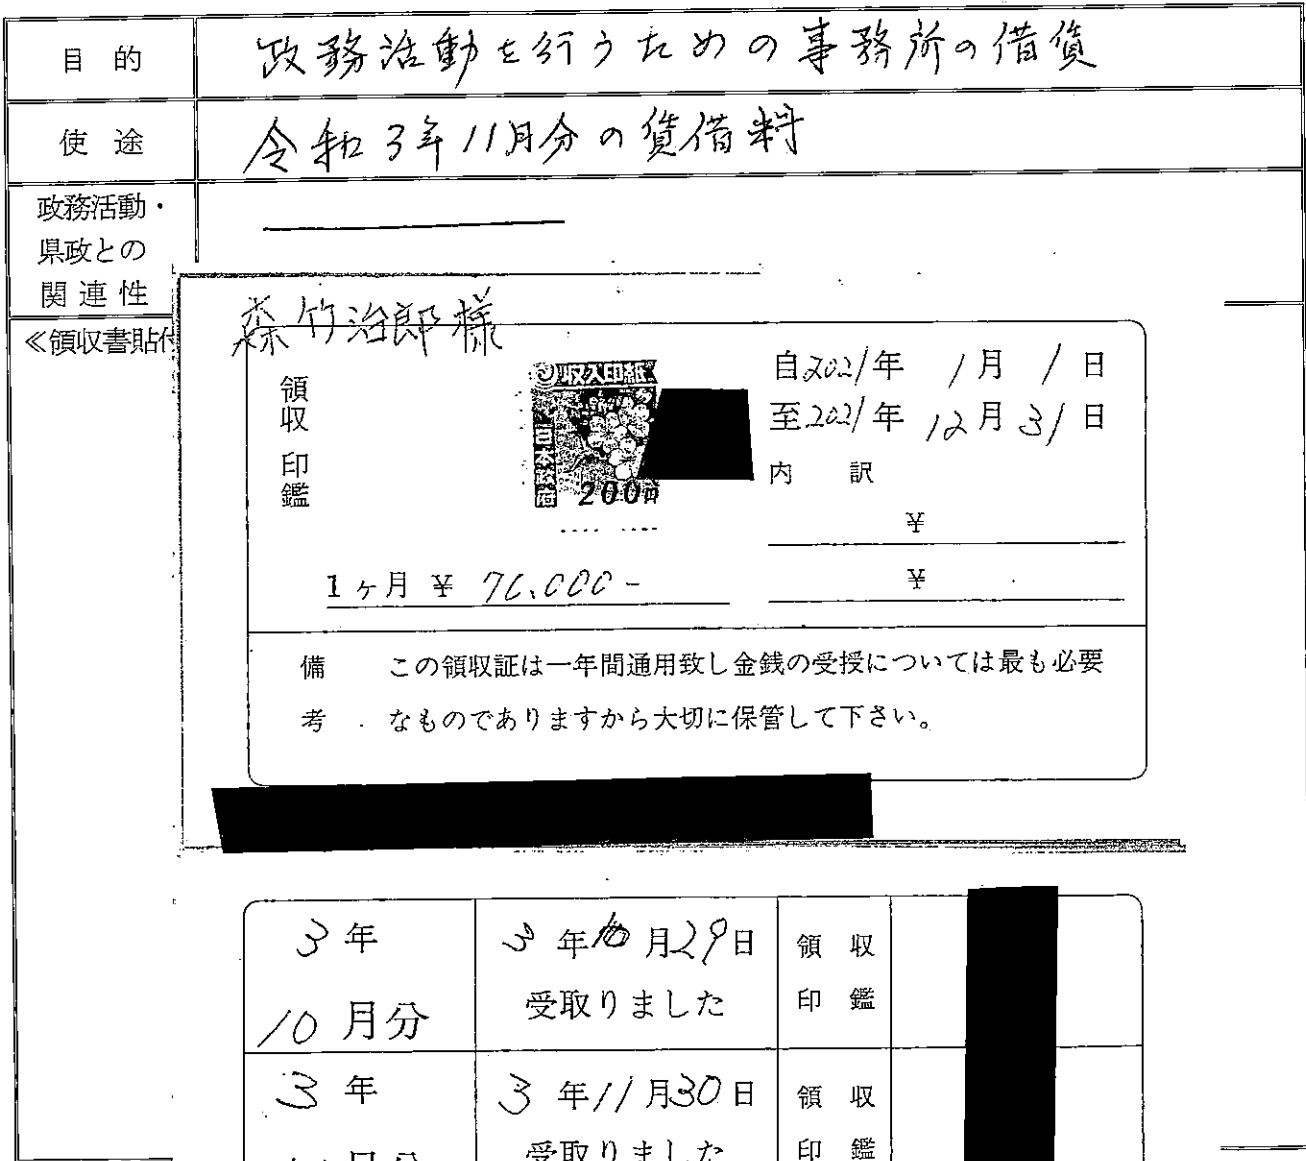 目的
政務活動を行うための事務所の借賃
使途
令和3年11月分の賃借料
政務活動・
県政との
関連性
≪領収書貼付
森竹治郎様
領収印鑑
収入印紙
日本政府
200円
自2021年 1月 1日
至2021年 12月 31日
内訳
¥
¥
1ヶ月 ¥ 70.000-
備考
この領収証は一年間通用致し金銭の受授については最も必要
なものでありますから大切に保管して下さい。
3年
10月分
3年10月29日
受取りました
領収
印鑑
3年
3年11月30日
受取りました
領収
印鑑
月分